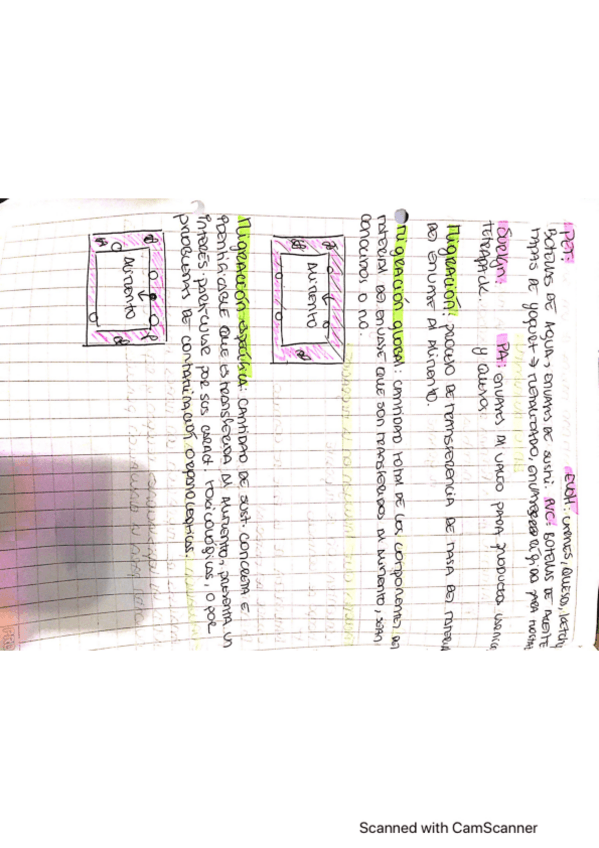 PET: EVOH: carnes, queso,
Botellas de agua, envases de sushi. PVC: Botellas de aceite
tapas de yogurt → metalizado, envase rígido para
Surlyn: PA: envases al vacío para productos
tetrapack. y quesos
Migración: proceso de transferencia de masa del
del envase al alimento.
Migración global: cantidad total de los componentes del
material del envase que son transferidos al alimento, sean
conocidos o no.
Alimento
Migración específica: cantidad de sust. concreta e
identificable que es transferida al alimento, presenta un
interés particular por sus caract. toxicológicas, o por
problemas de contaminación organolépticas.
Alimento
Scanned with CamScanner